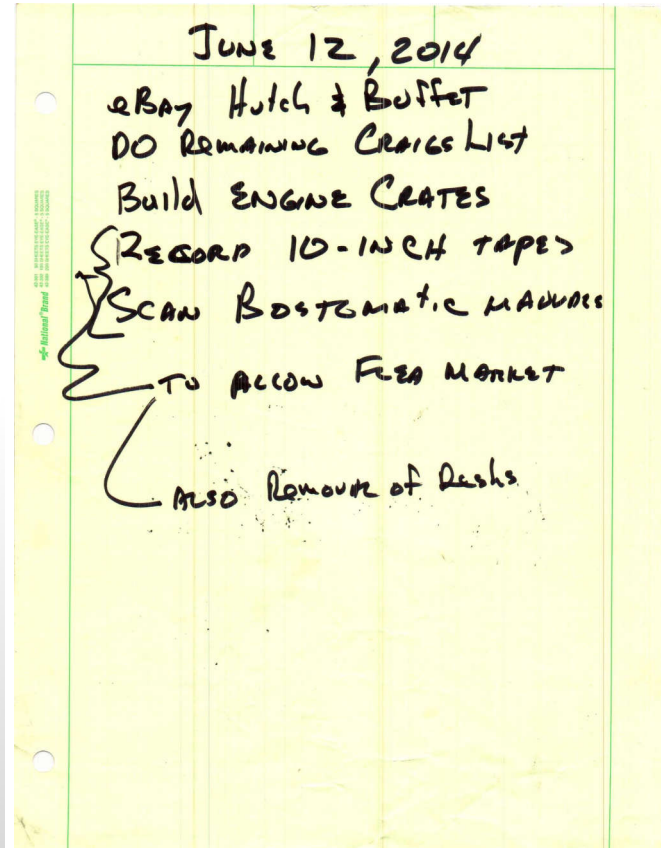 JUNE 12, 2014
eBay Hutch & Buffet
DO Remaining Craigs List
Build ENGINE CRATES
RECORD 10-INCH TAPES
SCAN BOSTOMATIC MANUALS
TO ALLOW FLEA MARKET
ALSO Removal of Desks
National Brand